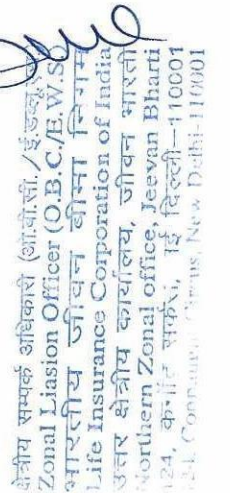 क्षेत्रीय सम्पर्क अधिकारी (ओ.बी.सी./ई.डब्लू.
Zonal Liasion Officer (O.B.C/E.W.S)
भारतीय जीवन बीमा निगम
Life Insurance Corporation of India
उत्तर क्षेत्रीय कार्यालय, जीवन भारती
Northern Zonal office, Jeevan Bharti
124, कनॉट सर्कस, नई दिल्ली-110001
124, Connaught Circus, New Delhi-110001